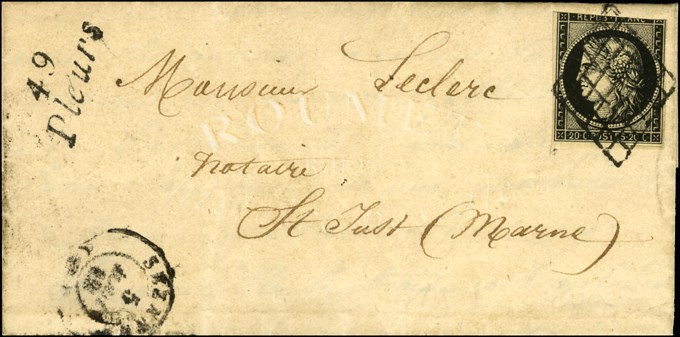 49
Pleurs
REPUB. FRANC.
20 C. POSTES 20 C.
Monsieur Leclerc
ROUMET
notaire
St Just (Marne)
5